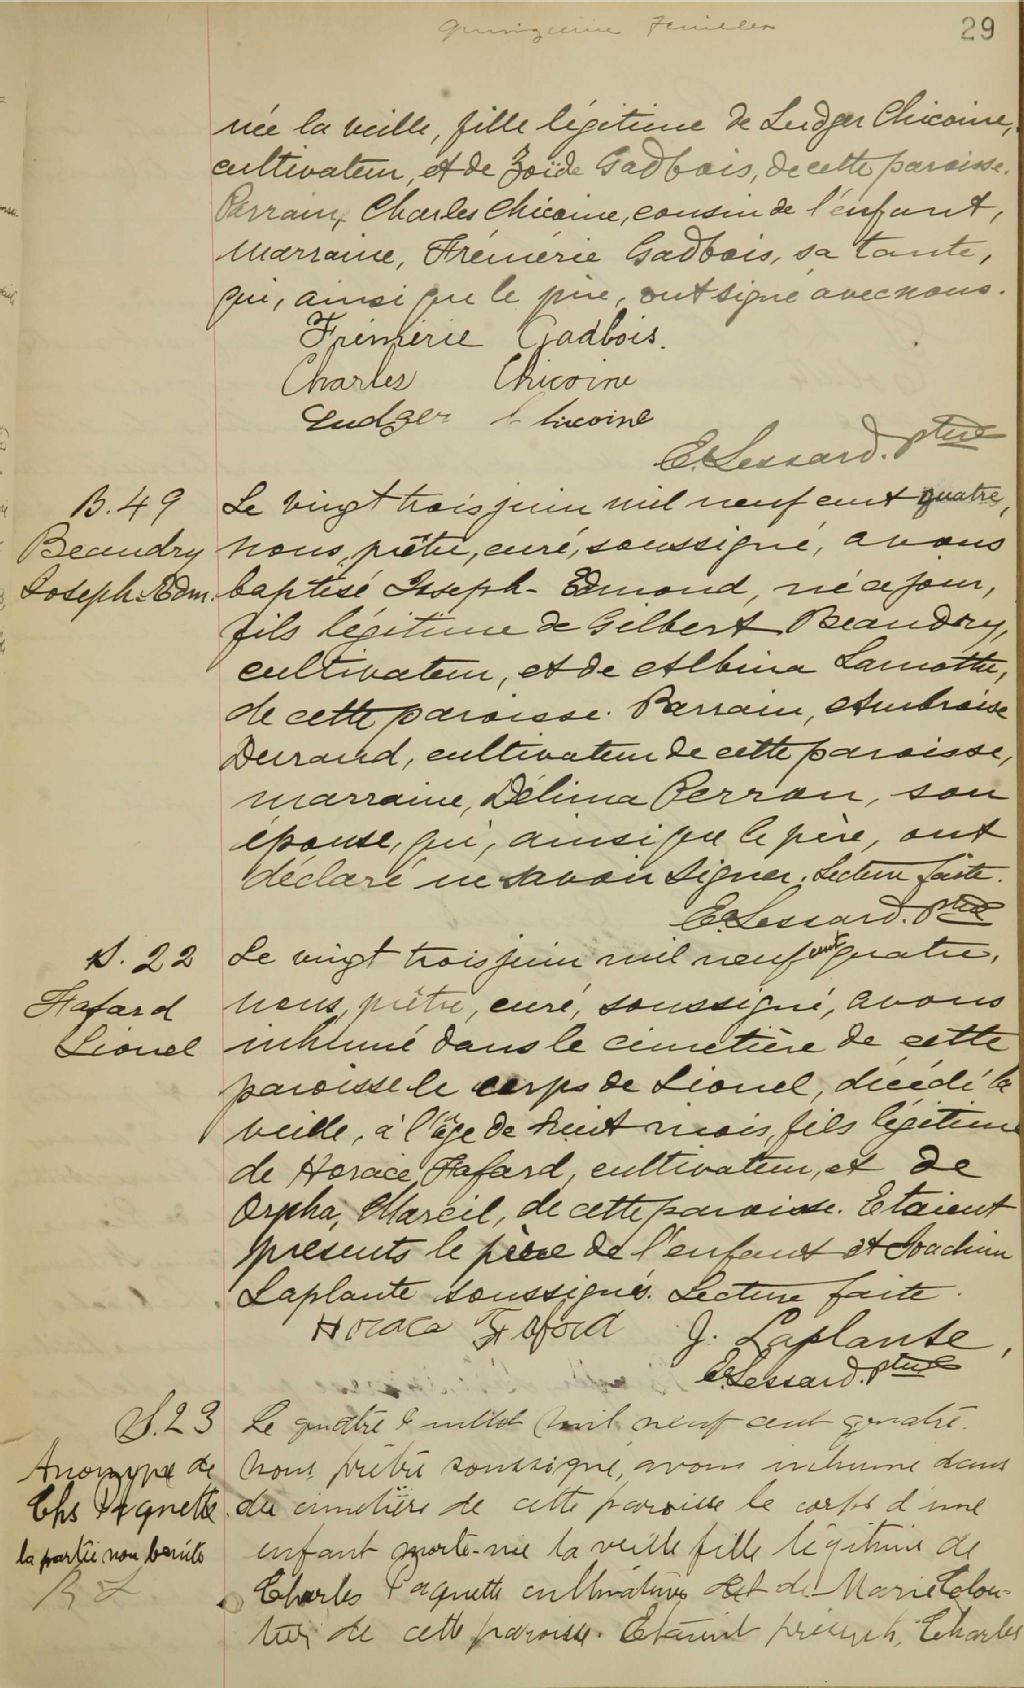 29
née la veille, fille légitime de Ludger Chicoine,
cultivateur, et de Zoïde Gadbois, de cette paroisse.
Parrain, Charles Chicoine, cousin de l'enfant,
Marraine, Frémérie Gadbois, sa tante,
qui, ainsi que le père, ont signé avec nous.
Frémérie Gadbois.
Charles Chicoine
Ludger Chicoine
E. Lessard. ptre
B. 49
Beaudry
Joseph-Edm.
Le vingt trois juin mil neuf cent quatre,
nous, prêtre, curé, soussigné, avons
baptisé Joseph-Edmond, né ce jour,
fils légitime de Gilbert Beaudry,
cultivateur, et de Albina Lamotte,
de cette paroisse. Parrain, Ambroise
Durand, cultivateur de cette paroisse,
marraine, Délima Perron, son
épouse, qui, ainsi que le père, ont
déclaré ne savoir signer. Lecture faite.
E. Lessard. ptre
S. 22
Fafard
Lionel
Le vingt trois juin mil neuf cent quatre,
nous, prêtre, curé, soussigné, avons
inhumé dans le cimetière de cette
paroisse le corps de Lionel, décédé la
veille, à l'âge de huit mois, fils légitime
de Horace Fafard, cultivateur, et de
Orpha Mareil, de cette paroisse. Etaient
présents le père de l'enfant et Joachim
Laplante soussignés. Lecture faite.
Horace Fafard J. Laplante,
E. Lessard. ptre
S. 23
Anonyme de
Chs Paquette
la partie non benite
Le quatre juillet mil neuf cent quatre.
nous prêtre soussigné, avons inhumé dans
du cimetière de cette paroisse le corps d'une
enfant morte-née la veille fille légitime de
Charles Paquette cultivateur et de Marie Clou-
tier de cette paroisse. Etaient présents, Charles